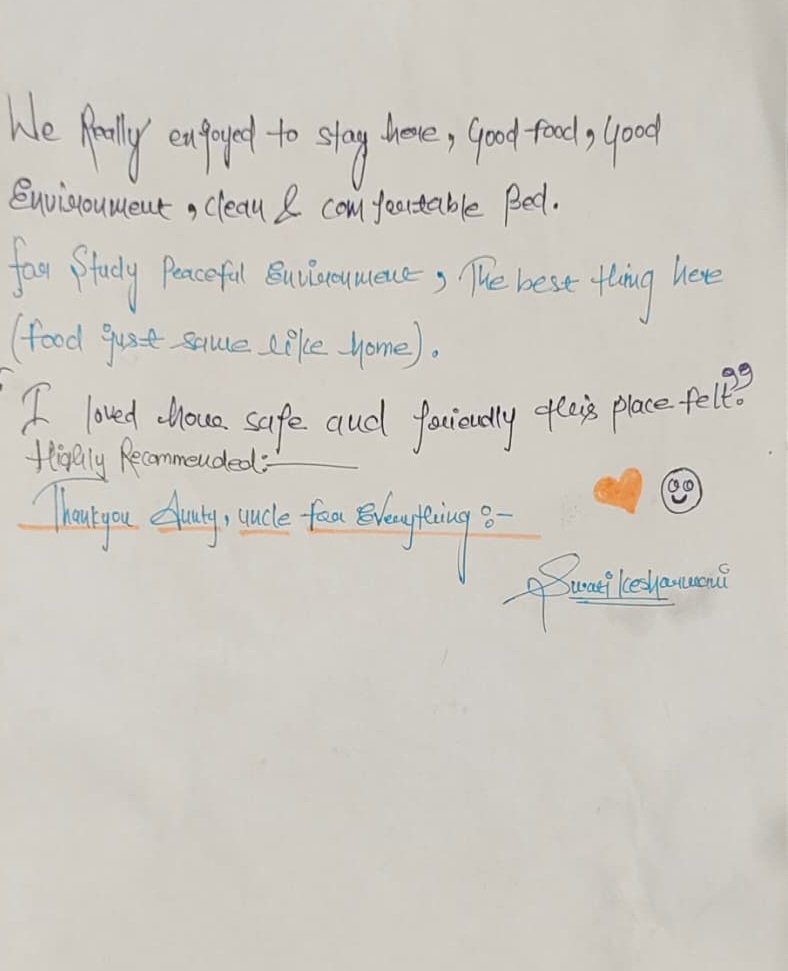 We Really enjoyed to stay here, Good food, Good
Environment, clean & comfortable Bed.
for Study Peaceful Environment, The best thing here
(food just same like home).
"I loved how safe and friendly this place felt."
Highly Recommended:-
Thankyou Aunty, uncle for Everything :-
Swati Kesharwani